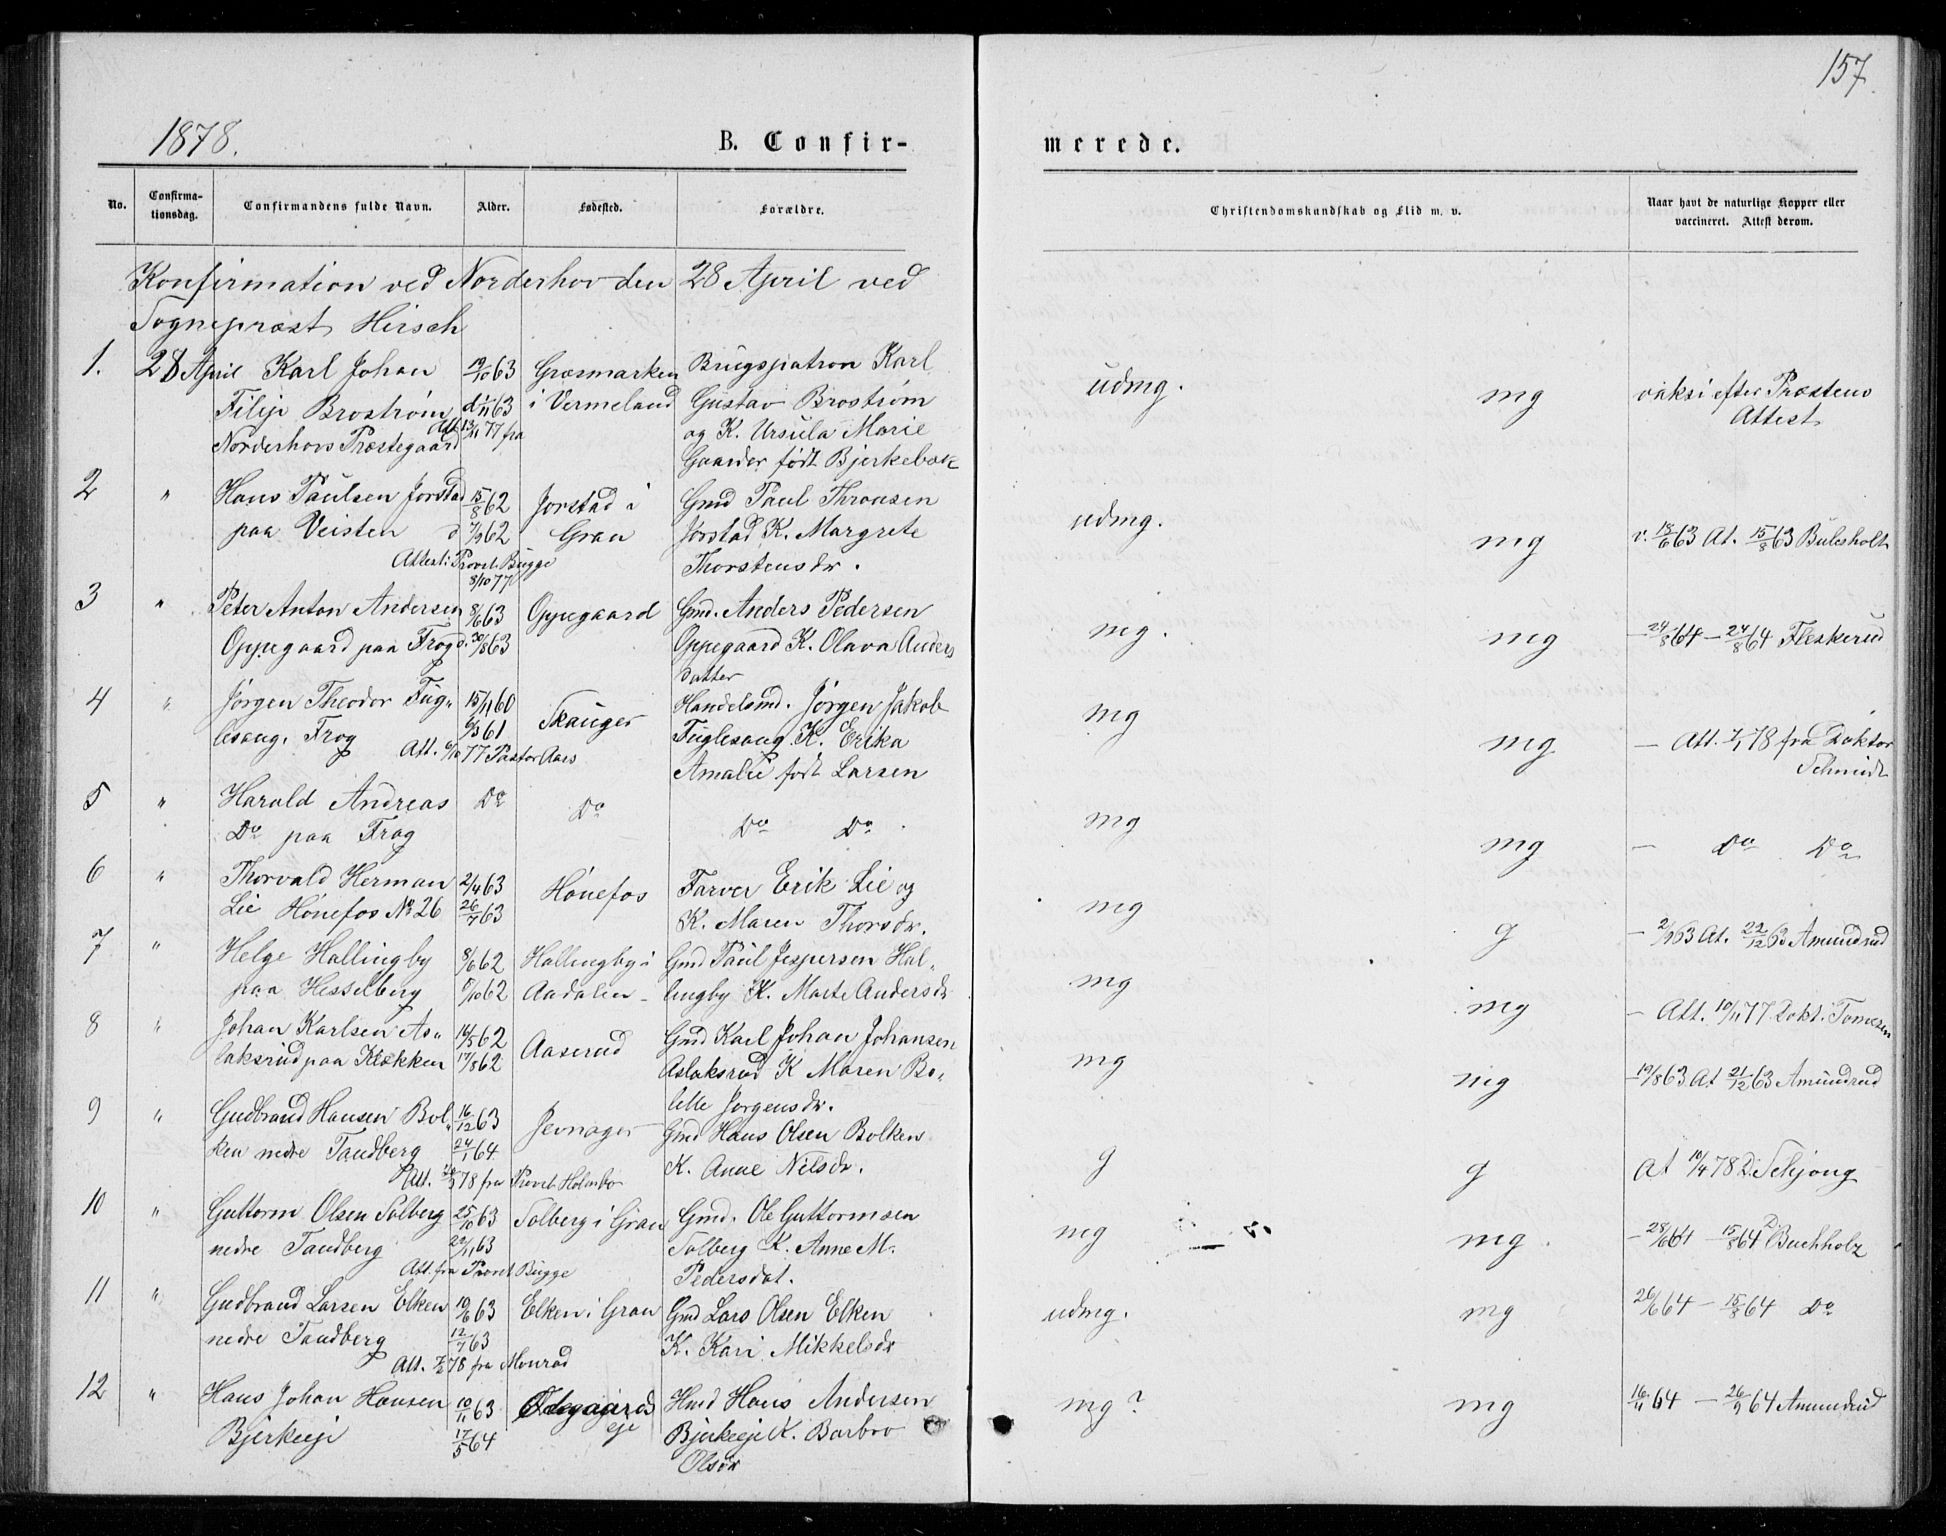 157.
1878.
B. Confir-
merede.
No.
Confirma-
tionsdag.
Confirmandens fulde Navn.
Alder.
Fødested.
Forældre.
Christendomskundskab og Flid m. v.
Naar havt de naturlige Kopper eller
vaccineret. Attest derom.
Konfirmation ved Norderhov den 28 April ved
Sognepræst Hirsch
1. 28 April Karl Johan 19/10 63 Græsmarken Brugspatron Karl
Filip Brostrøm d 1/11 63 i Vermeland Gustav Brostrøm
Norderhovs Præstegaard Att. 13/11 77 fra og K. Ursula Marie
Gaarder født Bjerkebæk
udmg. mg vaksi efter Præstens
Attest
2 " Hans Paulsen Jorstad 15/8 62 Jorstad i Gmd Paul Thronsen
paa Veisten d 7/9 62 Gran Jorstad K. Margrete
Attest: Provst Bugge Thorstensdr.
8/10 77
udmg. mg v. 18/6 63 At. 15/8 63 Bulesholt
3 " Peter Anton Andersen 8/6 63 Oppegaard Gmd. Anders Pedersen
Oppegaard paa Frog d. 30/8 63 Oppegaard K. Olava Anders
datter
mg. mg — 24/8 64 — 24/8 64 Fleskerud
4 " Jørgen Theodor Fug„ 15/11 60 Skauger Handelsmd. Jørgen Jakob
lesang. Frog 6/3 61 Fuglesang K. Erika
Att. 6/10 77 Pastor Aars Amalie født Larsen
mg mg — Att. 7/1 78 fra Doktor
Schmidt
5 " Harald Andreas Do Do
Do paa Frog Do Do
mg mg — Do Do
6 " Thorvald Herman 2/4 63 Hønefos Farver Erik Lie og
Lie Hønefos No 26 26/7 63 K. Maren Thorsdr.
mg g — 2/9 63 At. 22/12 63 Amundrud
7 " Helge Hallingby 8/6 62 Hallingby i Gmd Paul Jespersen Hal„
paa Hesselberg 5/10 62 Aadalen — lingby K. Marte Andersdr
mg mg — Att. 10/11 77 Dokt. Tomesen
8 " Johan Karlsen As„ 14/5 62 Aaserud Gmd Karl Johan Johansen
laksrud paa Klækken 17/8 62 Aslaksrud K Maren Bo„
lette Jørgensdr.
mg mg — 19/8 63 At 21/12 63 Amundrud
9 " Gudbrand Hansen Bol„ 16/12 63 Jevnager Gmd Hans Olsen Bolken
ken nedre Tandberg 24/1 64 K. Anne Nilsdr.
Att. 20/3 78 fra Provst Holmbo
g g At 10/4 78 D. Schjong
10 " Guttorm Olsen Solberg 25/10 63 Solberg i Gran Gmd. Ole Guttormsen
nedre Tandberg 29/11 63 Solberg K. Anne M.
Att. fra Provst Bugge Pedersdat.
mg mg. — 28/6 64 — 15/8 64 D Buchholz
11 " Gudbrand Larsen Elken 10/6 63 Elken i Gran Gmd Lars Olsen Elken
nedre Tandberg 12/7 63 K. Kari Mikkelsdr
Att. 7/2 78 fra Monrad
udmg. mg 26/6 64 — 15/8 64 Do
12 " Hans Johan Hansen 10/11 63 Ødegaards Hmd Hans Andersen
Bjerkeeje 17/5 64 eje Bjerkeeje K. Barbro
Olsdr
mg? mg 16/11 64 — 26/9 64 Amundrud